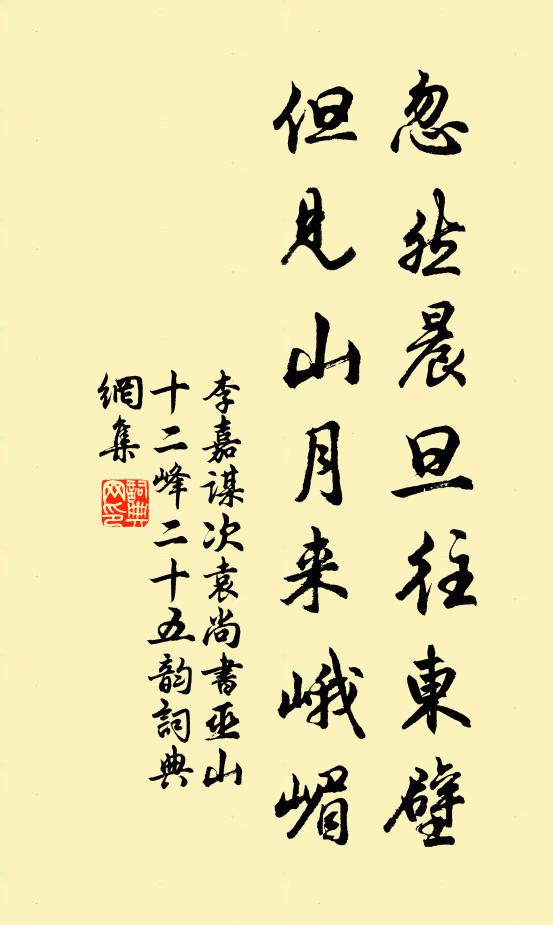 忽然晨旦往東壁
但見山月来峨嵋
李嘉謀次袁尚書巫山
十二峰二十五韵詞典
網集
詞典網印